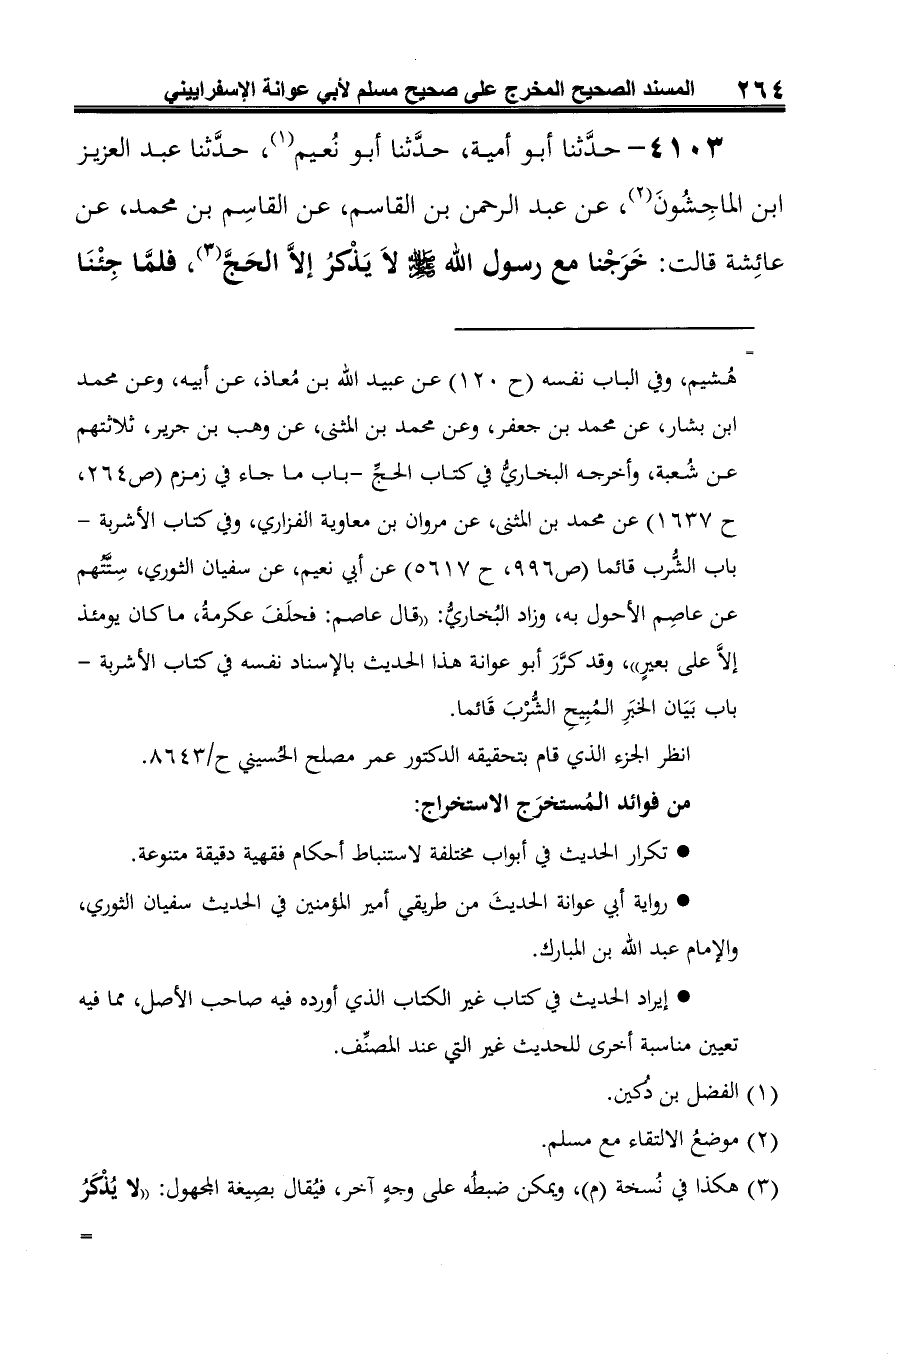 ٢٦٤ المسند الصحيح المخرج على صحيح مسلم لأبي عوانة الإسفراييني
٤١٠٣– حدَّثنا أبو أمية، حدَّثنا أبو نُعيم(١)، حدَّثنا عبد العزيز
ابن الماجِشُونَ(٢)، عن عبد الرحمن بن القاسم، عن القاسِم بن محمد، عن
عائِشة قالت: خَرَجْنا مع رسول الله ﷺ لاَ يَذْكرُ إلاَّ الحَجَّ(٣)، فلمَّا جِئْنَا
=
هُشيم، وفي الباب نفسه (ح ١٢٠) عن عبيد الله بن مُعاذ، عن أبيه، وعن محمد
ابن بشار، عن محمد بن جعفر، وعن محمد بن المثنى، عن وهب بن جرير، ثلاثتهم
عن شُعبة، وأخرجه البخاريُّ في كتاب الحجِّ –باب ما جاء في زمزم (ص٢٦٤،
ح ١٦٣٧) عن محمد بن المثنى، عن مروان بن معاوية الفزاري، وفي كتاب الأشربة –
باب الشُّرب قائما (ص٩٩٦، ح ٥٦١٧) عن أبي نعيم، عن سفيان الثوري، سِتَّتُهم
عن عاصِم الأحول به، وزاد البُخاريُّ: ((قال عاصم: فحلَفَ عكرمةُ، ما كان يومئذ
إلاَّ على بعيرٍ))، وقد كرَّرَ أبو عوانة هذا الحديث بالإسناد نفسه في كتاب الأشربة –
باب بَيَان الخبَرِ المبِيحِ الشُّرْبَ قَائما.
انظر الجزء الذي قام بتحقيقه الدكتور عمر مصلح الحُسيني ح/٨٦٤٣.
من فوائد المُستخرَج الاستخراج:
● تكرار الحديث في أبواب مختلفة لاستنباط أحكام فقهية دقيقة متنوعة.
● رواية أبي عوانة الحديثَ من طريقي أمير المؤمنين في الحديث سفيان الثوري،
والإمام عبد الله بن المبارك.
● إيراد الحديث في كتاب غير الكتاب الذي أورده فيه صاحب الأصل، مما فيه
تعيين مناسبة أخرى للحديث غير التي عند المصنِّف.
(١) الفضل بن دُكين.
(٢) موضعُ الالتقاء مع مسلم.
(٣) هكذا في نُسخة (م)، ويمكن ضبطُه على وجهٍ آخر، فيُقال بصِيغة المجهول: ((لا يُذْكَرُ
=